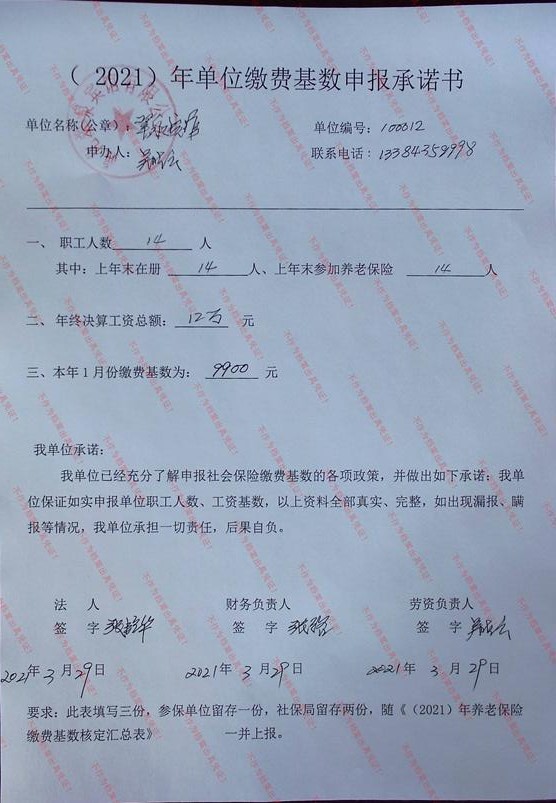 （ 2021）年单位缴费基数申报承诺书
单位名称(公章)：
单位编号：100012
申办人：
联系电话：13384359998
一、 职工人数 14 人
其中：上年末在册 14 人、上年末参加养老保险 14 人
二、 年终决算工资总额： 12万 元
三、本年1月份缴费基数为： 9900 元
我单位承诺：
我单位已经充分了解申报社会保险缴费基数的各项政策，并做出如下承诺：我单
位保证如实申报单位职工人数、工资基数，以上资料全部真实、完整，如出现漏报、瞒
报等情况，我单位承担一切责任，后果自负。
法 人 财务负责人 劳资负责人
签 字 签 字 签 字
2021年 3 月 29日 2021年 3 月 29日 2021年 3 月 29日
要求：此表填写三份，参保单位留存一份，社保局留存两份，随《（2021）年养老保险
缴费基数核定汇总表》 一并上报。